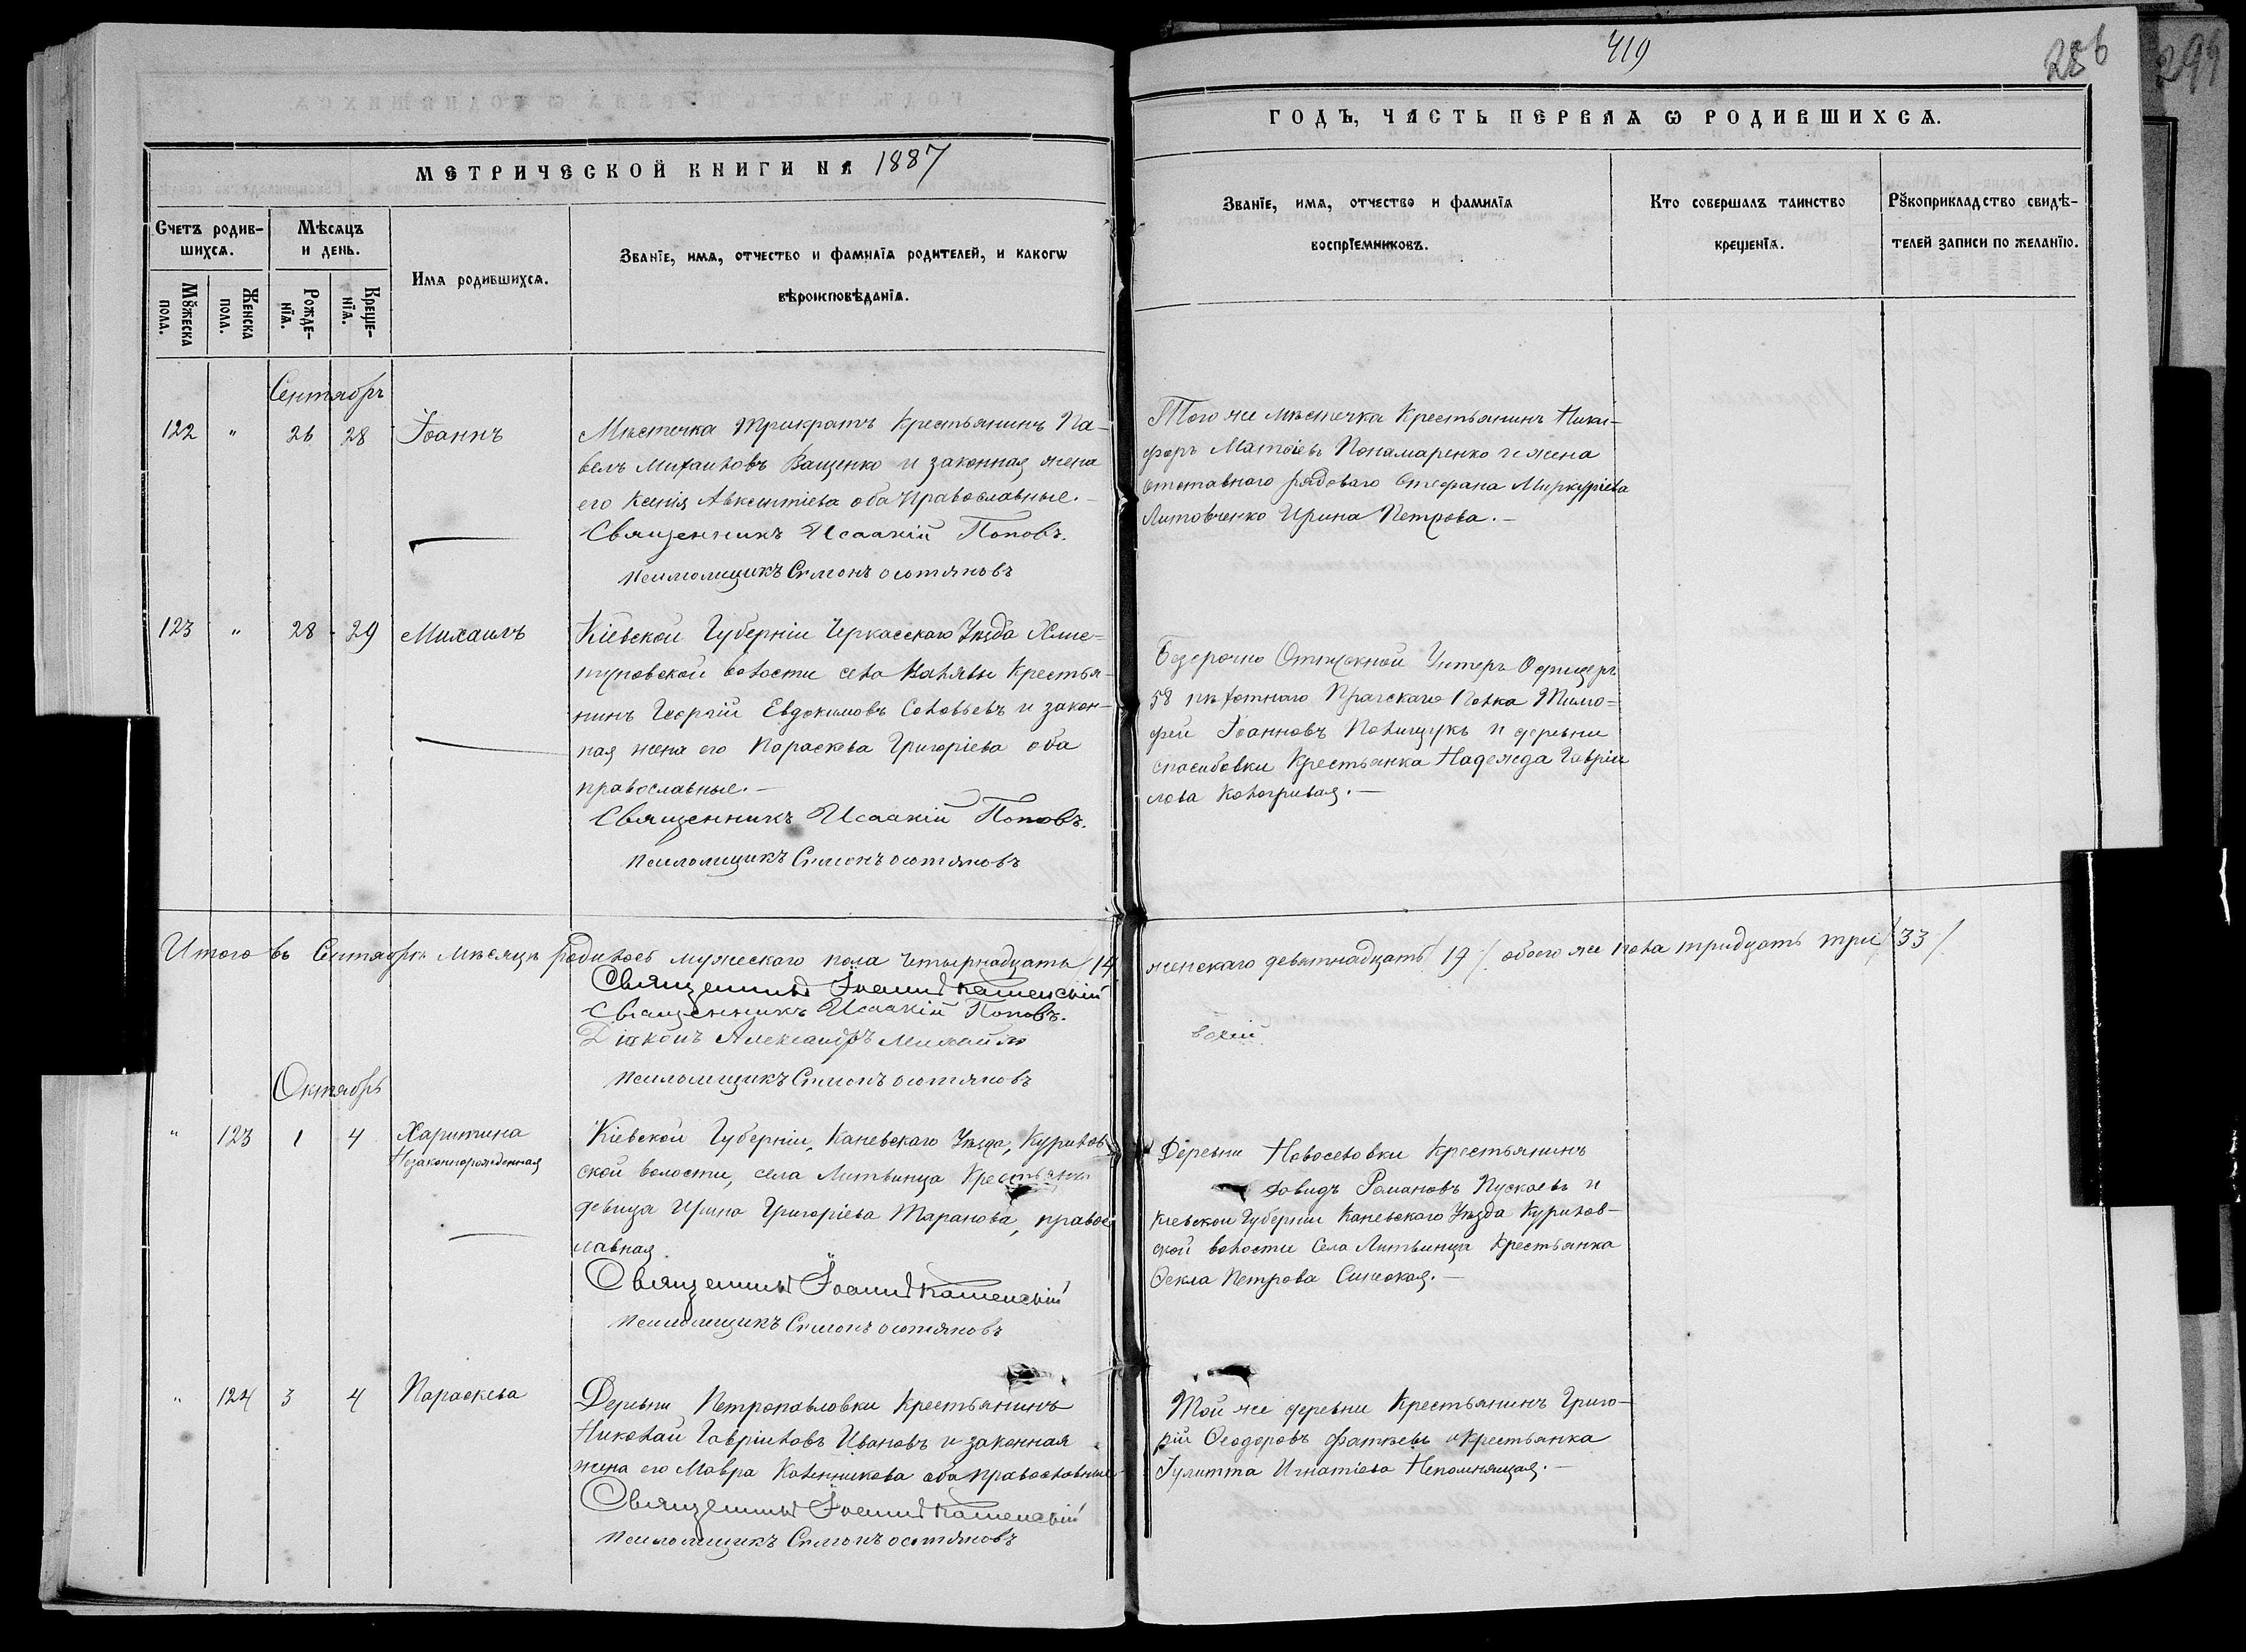 419
286
299
МЕТРИЧЕСКОЙ КНИГИ НА 1887
ГОДЪ, ЧАСТЬ ПЕРВАЯ Ѡ РОДИВШИХСѦ.
Счетъ родив-
шихсѧ.
Мꙋжеска
пола.
Женска
пола.
Мѣсѧцъ
и день.
Рожде-
нїѧ.
Креще-
нїѧ.
Имѧ родившихсѧ.
Званїе, имѧ, отчество и фамилїѧ родителей, и какогѡ
вѣроисповѣданїѧ.
Званїе, имѧ, отчество и фамилїѧ
воспрїемниковъ.
Кто совершалъ таинство
крещенїѧ.
Рꙋкоприкладство свидѣ-
телей записи по желанїю.
Сентябрь
122 " 26 28 Іоаннъ
Мѣстечка Трикратъ Крестьянинъ Па-
велъ Михаиловъ Ващенко и законная жена
его Ксенія Авксентіева оба православные.—
Священникъ Исаакій Поповъ.
Псаломщикъ Симонъ Остяновъ
Того же мѣстечка Крестьянинъ Ники-
форъ Матѳіевъ Понамаренко и жена
отставного рядового Стефана Меркуріева
Литовченко Ирина Петрова.—
123 " 28 29 Михаилъ
Кіевской Губерніи Черкасскаго Уѣзда
волости села Крестья-
нинъ Георгій Евдокимовъ Соловьевъ и закон-
ная жена его Параскева Григоріева оба
православные.—
Священникъ Исаакій Поповъ.
Псаломщикъ Симонъ Остяновъ
Безсрочно Отпускной Унтеръ Офицеръ
58 пѣхотнаго Прагскаго Полка Тимо=
фей Іоанновъ Полищукъ и деревни
Спасибовки Крестьянка Надежда Гавріи
лова Кологривая.—
Итого въ Сентябрѣ мѣсяцѣ родилось мужескаго пола четырнадцать /14
женскаго девятнадцать /19/. обоего же пола тридцать три /33/.
Священникъ Іоаннъ Каменскій
Священникъ Исаакій Поповъ.
Діаконъ Александръ Михайло
вскій
Псаломщикъ Симонъ Остяновъ
Октябрь
" 123 1 4 Харитина
Незаконнорожденная
Кіевской Губерніи, Каневскаго Уѣзда, Курилов
ской волости, села Литвинца Крестьянка
девица Ирина Григоріева Таранова, правос
лавная.
Священникъ Іоаннъ Каменскій
Псаломщикъ Симонъ Остяновъ
Деревни Новоселовки Крестьянинъ
Давидъ Романовъ Пускаевъ и
Кіевской Губерніи Каневскаго Уѣзда Курилов-
ской волости Села Литвинца Крестьянка
Ѳекла Петрова Синеокая.—
" 124 3 4 Параскева
Деревни Петропавловки Крестьянинъ
Николай Гавріиловъ Ивановъ и законная
жена его Мавра Калинникова оба православные
Священникъ Іоаннъ Каменскій
Псаломщикъ Симонъ Остяновъ
Той же деревни Крестьянинъ Григо-
рій Ѳеодоровъ Фатѣевъ и Крестьянка
Іулитта Игнатіева Непомнящая.—